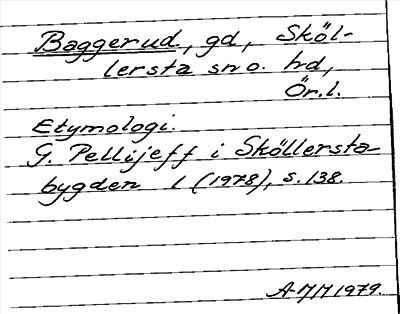 Baggerud, gd, Sköl-
lersta sno. hd,
Ör.l.
Etymologi.
G. Pellijeff i Sköllersta-
bygden 1 (1978), s. 138.
AMM 1979.